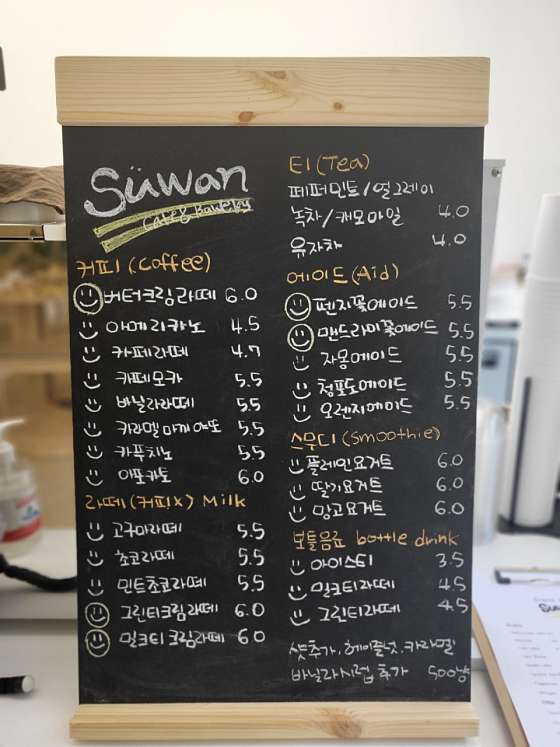 Süwan
cafe & Bakery
커피 (Coffee)
버터크림라떼 6.0
아메리카노 4.5
카페라떼 4.7
카페모카 5.5
바닐라라떼 5.5
카라멜 마끼야또 5.5
카푸치노 5.5
아포카토 6.0
라떼 (커피X) Milk
고구마라떼 5.5
초코라떼 5.5
민트초코라떼 5.5
그린티크림라떼 6.0
밀크티 크림라떼 6.0
티 (Tea)
페퍼민트/얼그레이
녹차/캐모마일 4.0
유자차 4.0
에이드 (Aid)
팬지꽃에이드 5.5
맨드라미꽃에이드 5.5
자몽에이드 5.5
청포도에이드 5.5
오렌지에이드 5.5
스무디 (Smoothie)
플레인요거트 6.0
딸기요거트 6.0
망고요거트 6.0
보틀음료 bottle drink
아이스티 3.5
밀크티라떼 4.5
그린티라떼 4.5
샷추가, 헤이즐넛, 카라멜
바닐라시럽 추가 500냥